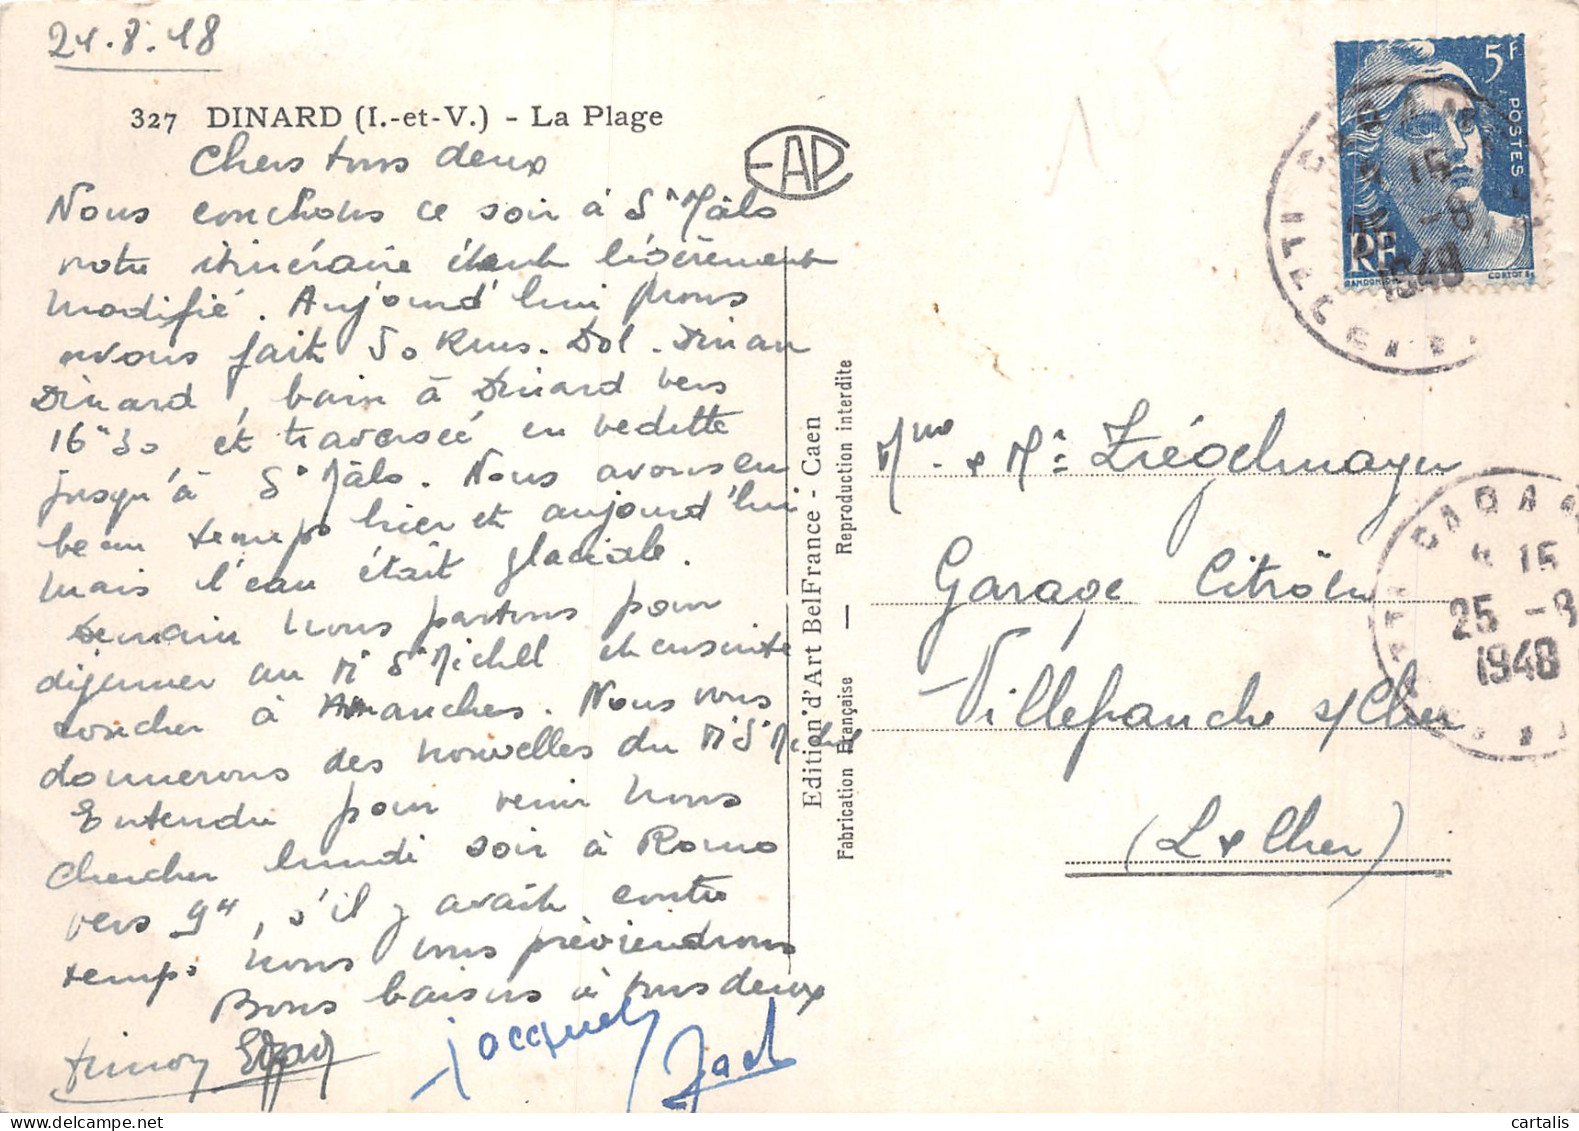 24.8.48
327 DINARD (I.-et-V.) - La Plage
Chers tous deux
EAP
Nous couchons ce soir à St Mâlo
notre itinéraire étant légèrement
modifié. Aujourd'hui nous
avons fait 50 kms. Dol. Dinan
Dinard, bain à Dinard vers
16h30 et traversée en vedette
jusqu'à St Mâlo. Nous avons eu
beau temps hier et aujourd'hui
mais l'eau était glaciale.
Demain nous partons pour
déjeuner au Mt St Michel et ensuite
coucher à Avranches. Nous vous
donnerons des nouvelles du Mt St Michel
Entendu pour venir nous
chercher lundi soir à Romo
vers 9h, s'il y avait contre
temps nous vous préviendrons
Bons baisers à tous deux
Simon
Jacquely
Jack
Edition d'Art BelFrance - Caen
Fabrication Française — Reproduction interdite
5F
POSTES
RF
GANDON
CORTOT
CARAN
15
-8
1948
Mme & Mr Ziégelmayer
Garage Citroën
Villefranche s/Cher
(L & Cher)
CARAN
15
25 -8
1948
cartalis